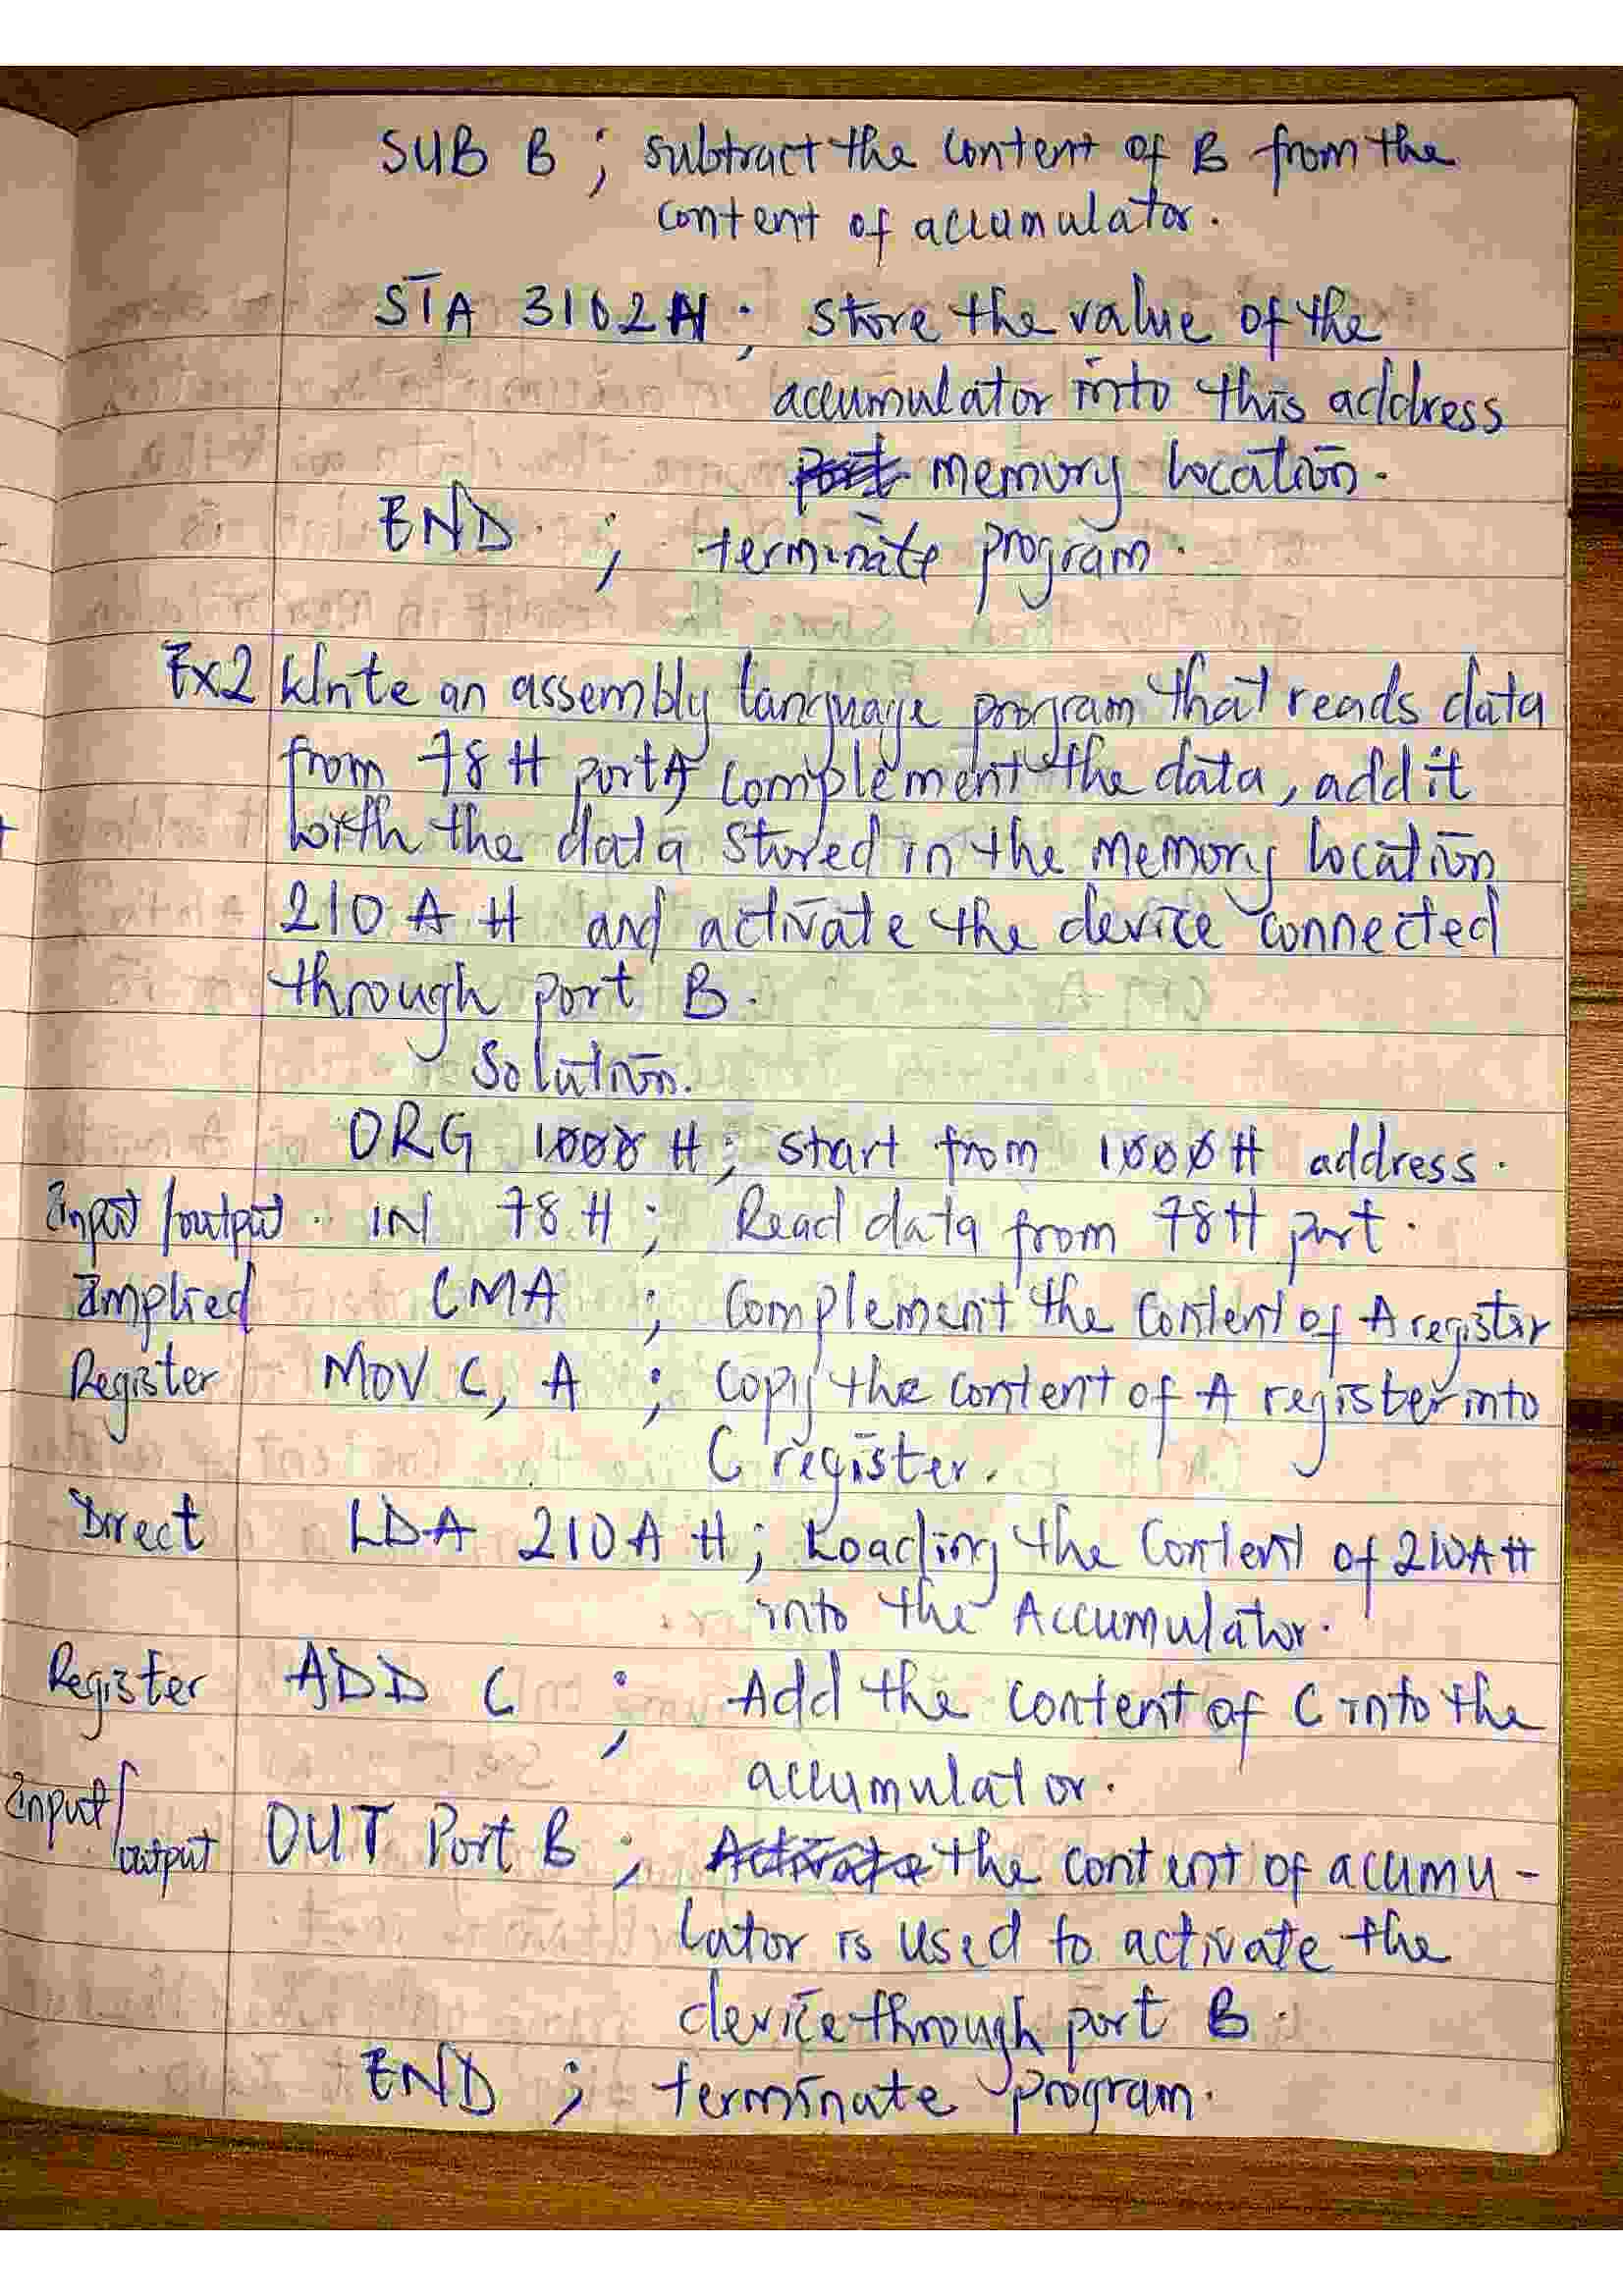 SUB B ; subtract the content of B from the
content of accumulator.
STA 3102H ; store the value of the
accumulator into this address
memory location.
END ; terminate program.
Ex2 Write an assembly language program that reads data
from 78H port A complement the data, add it
with the data stored in the memory location
210A H and activate the device connected
through port B.
Solution.
ORG 1000 H; start from 1000H address.
Input/output IN 78 H ; Read data from 78H port.
Implied CMA ; Complement the content of A register
Register MOV C, A ; Copy the content of A register into
C register.
Direct LDA 210A H ; Loading the content of 210AH
into the Accumulator.
Register ADD C ; Add the content of C into the
accumulator.
Input/
output OUT Port B ; the content of acumu-
lator is used to activate the
device through port B.
END ; terminate program.